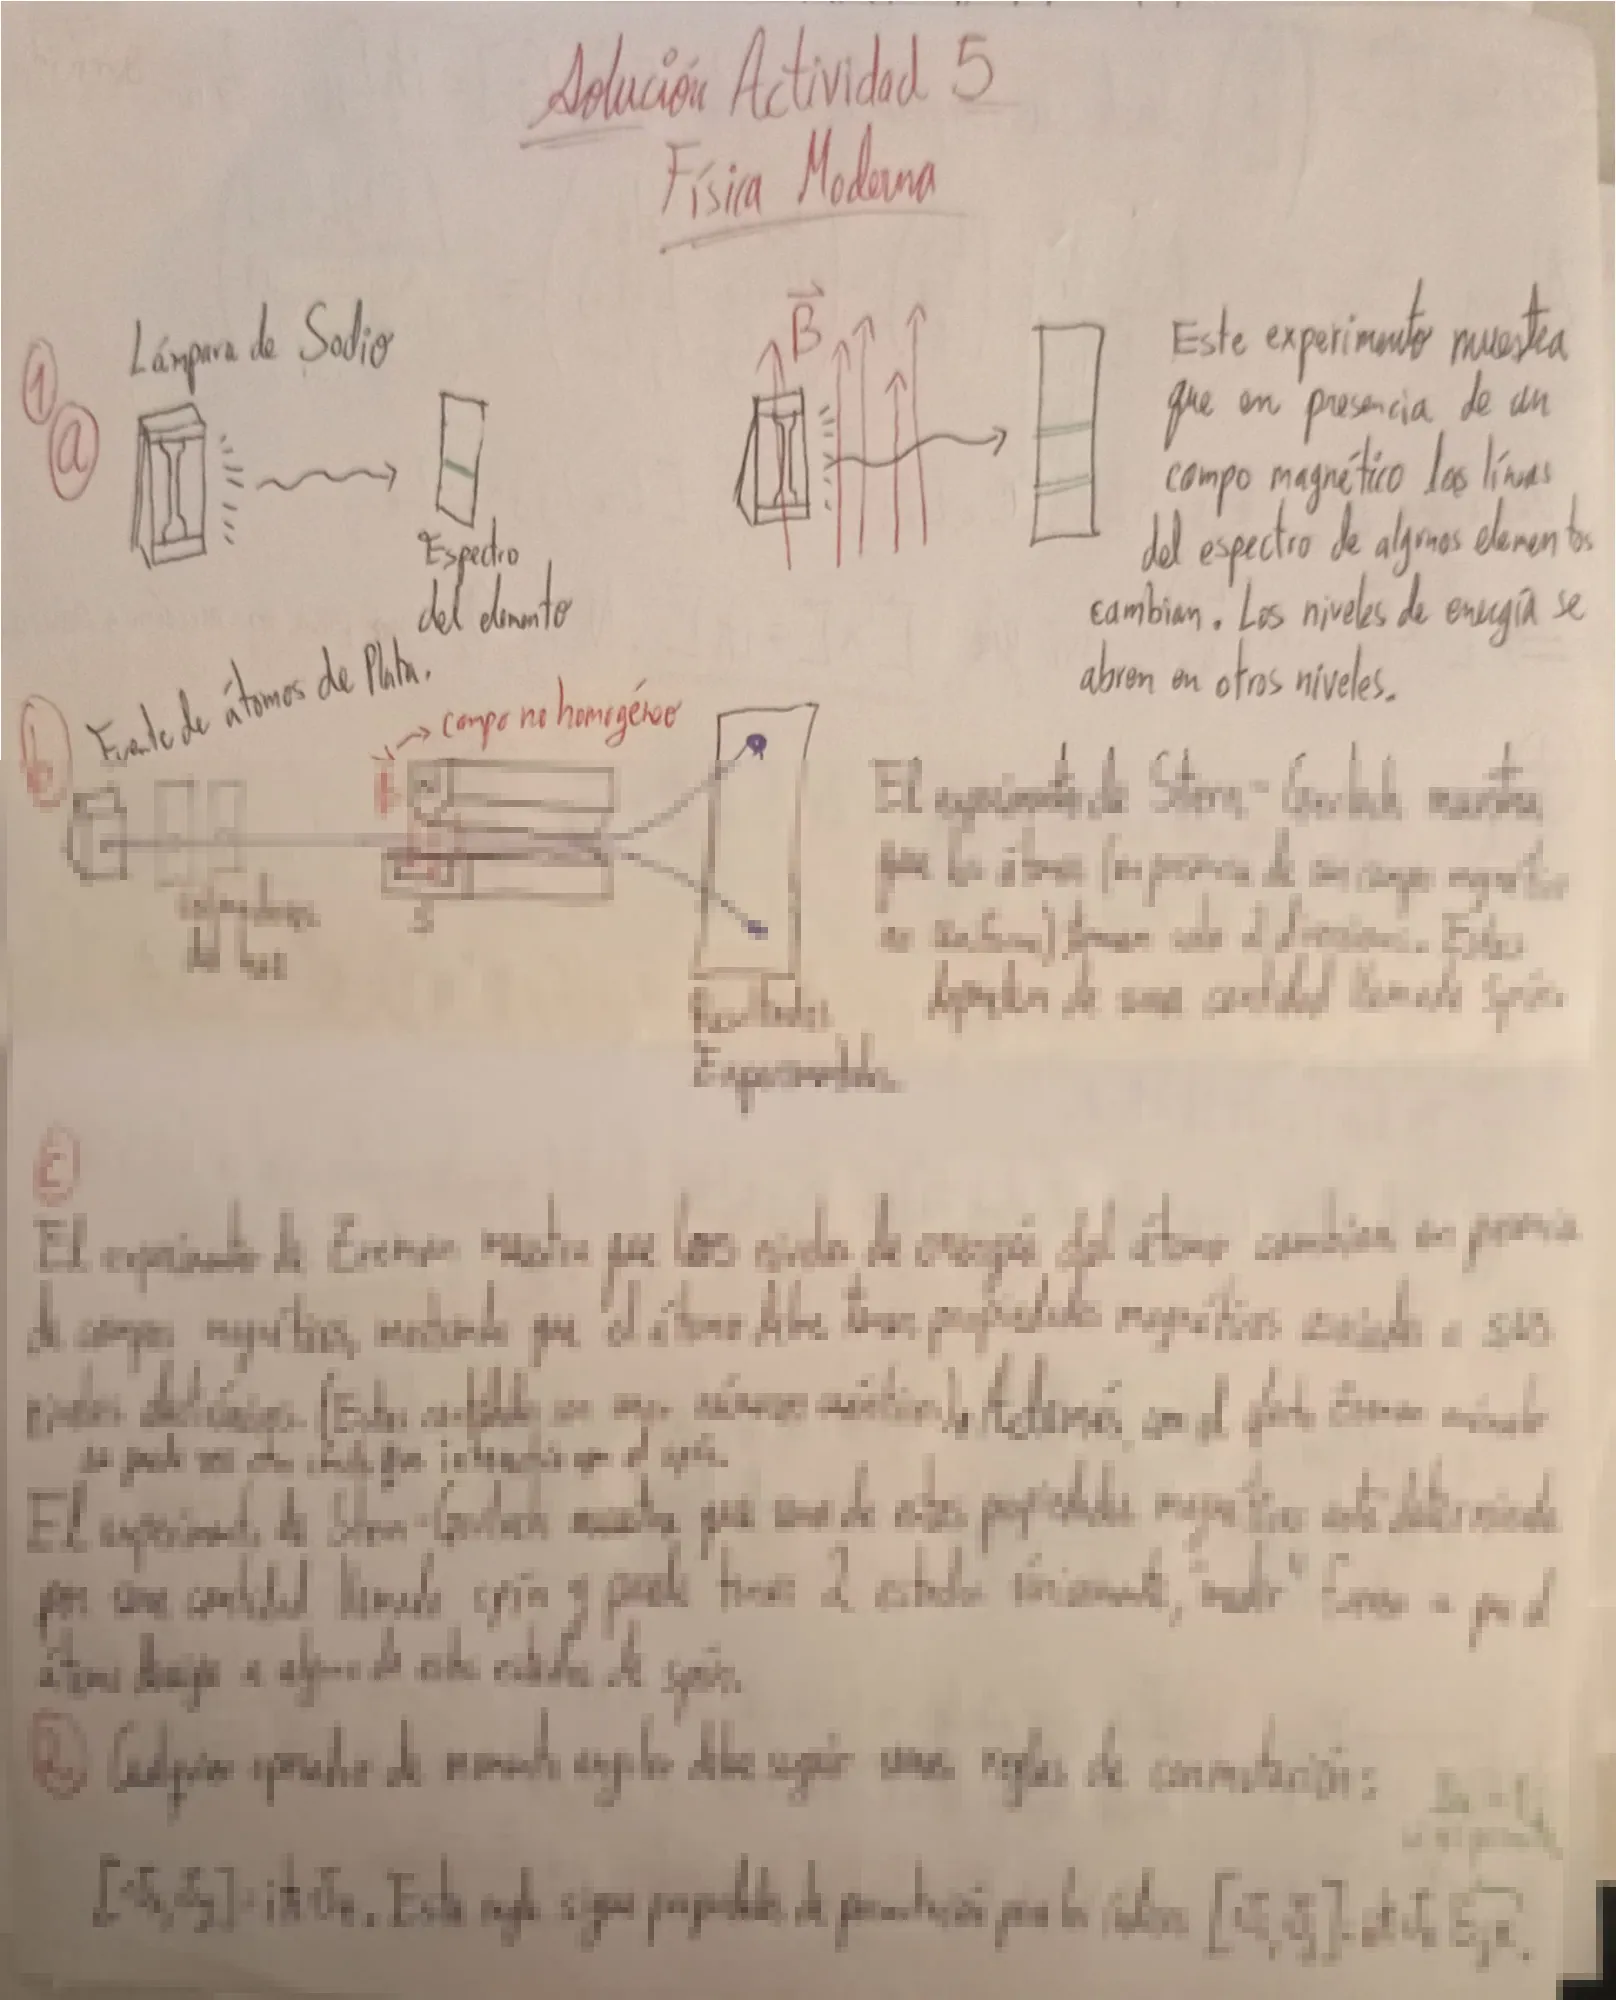 Solución Actividad 5
Física Moderna
1
a
Lámpara de Sodio
Espectro
del elemento
B
Este experimento muestra
que en presencia de un
campo magnético las líneas
del espectro de algunos elementos
cambian. Los niveles de energía se
abren en otros niveles.
b
Fuente de átomos de Plata.
campo no homogéneo
N
S
del haz
Resultados
Experimentales.
El experimento de Stern-Gerlach muestra
que los átomos (en presencia de un campo magnético
no uniforme) toman solo 2 direcciones. Estas
dependen de una cantidad llamada spin.
c
El experimento de Zeeman muestra que los niveles de energía del átomo cambian en presencia
de campos magnéticos, mostrando que el átomo debe tener propiedades magnéticas asociadas a sus
niveles Además, con el efecto Zeeman anómalo
se puede ver que interactúa con el spin.
El experimento de Stern-Gerlach muestra que una de estas propiedades magnéticas está determinada
por una cantidad llamada spin y puede tener 2 estados únicamente, "medir" fuerza a que el
átomo a alguno de estos estados de spin.
2 Cualquier operador de momento angular debe seguir unas reglas de conmutación:
Esta regla sigue propiedades de permutación para los índices